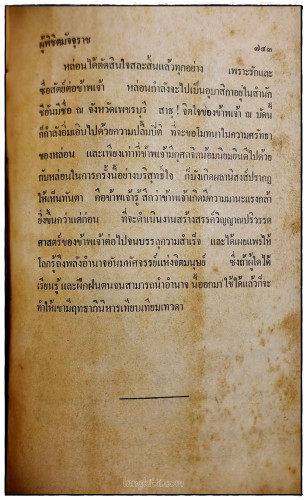 ผู้พิชิตมัจจุราช
๗๕๓
หล่อนได้ตัดสินใจสละสิ้นแล้วทุกอย่าง เพราะรักและ
ซื่อสัตย์ต่อข้าพเจ้า หล่อนกำลังจะไปเป็นอุบาสิกาอยู่ในสำนัก
ชีอันมีชื่อ ณ จังหวัดเพชรบุรี สาธุ! จิตใจของข้าพเจ้า ณ บัดนี้
ก็กำลังอิ่มเอิบไปด้วยความปลื้มปีติ ที่จะขอโมทนาในความศรัทธา
ของหล่อน และเพียงเท่าที่ข้าพเจ้ามีกุศลจิตน้อมนิยมยินดีไปด้วย
กับหล่อนในการครั้งนี้อย่างบริสุทธิ์ใจ ก็บังเกิดผลานิสงส์ปรากฏ
ให้เห็นทันตา คือข้าพเจ้ารู้สึกว่าข้าพเจ้าเกิดมีความมานะแรงกล้า
ยิ่งขึ้นกว่าแต่ก่อน ที่จะดำเนินงานสร้างสรรค์วิญญาณปริวรรต
ศาสตร์ของข้าพเจ้าต่อไปจนบรรลุความสำเร็จ และได้เผยแพร่ให้
โลกรู้ถึงพลังอำนาจอันมหัศจรรย์แห่งจิตมนุษย์ ซึ่งถ้าผู้ใดได้
เรียนรู้ และฝึกฝนตนจนสามารถนำอำนาจ นี้ออกมา ใช้ได้แล้วก็จะ
ทำให้เขามีฤทธาภินิหารเทียบเทียมเทวดา